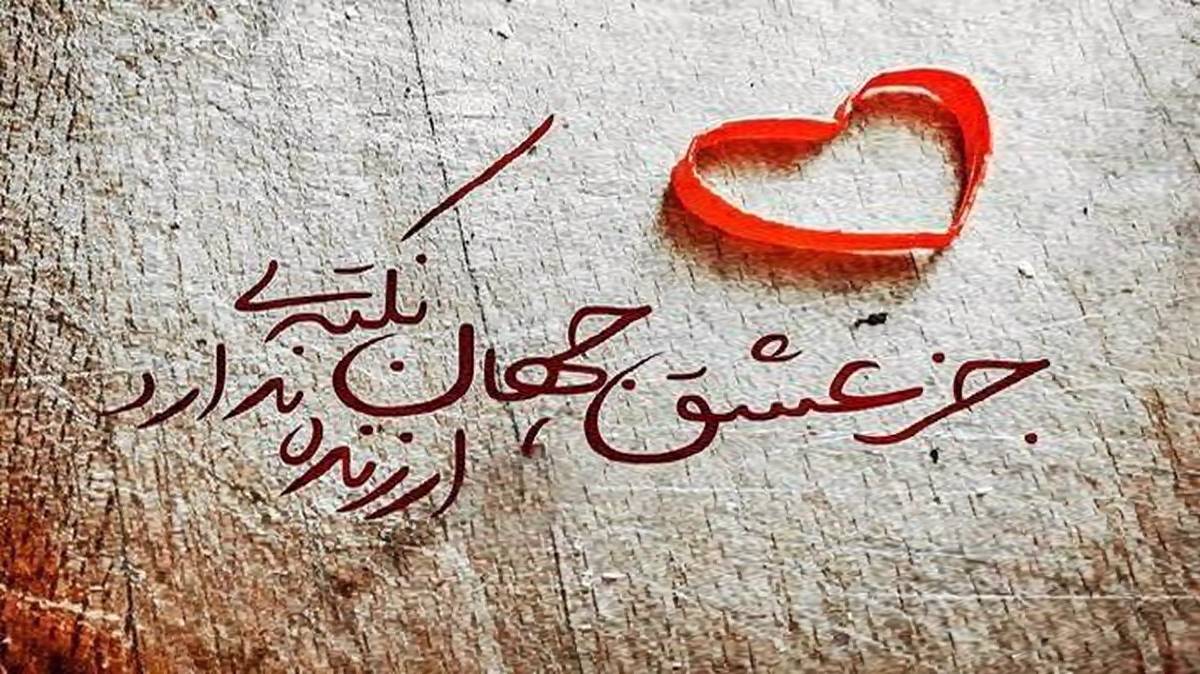 جز عشق جهان نکته‌ی ارزنده ندارد